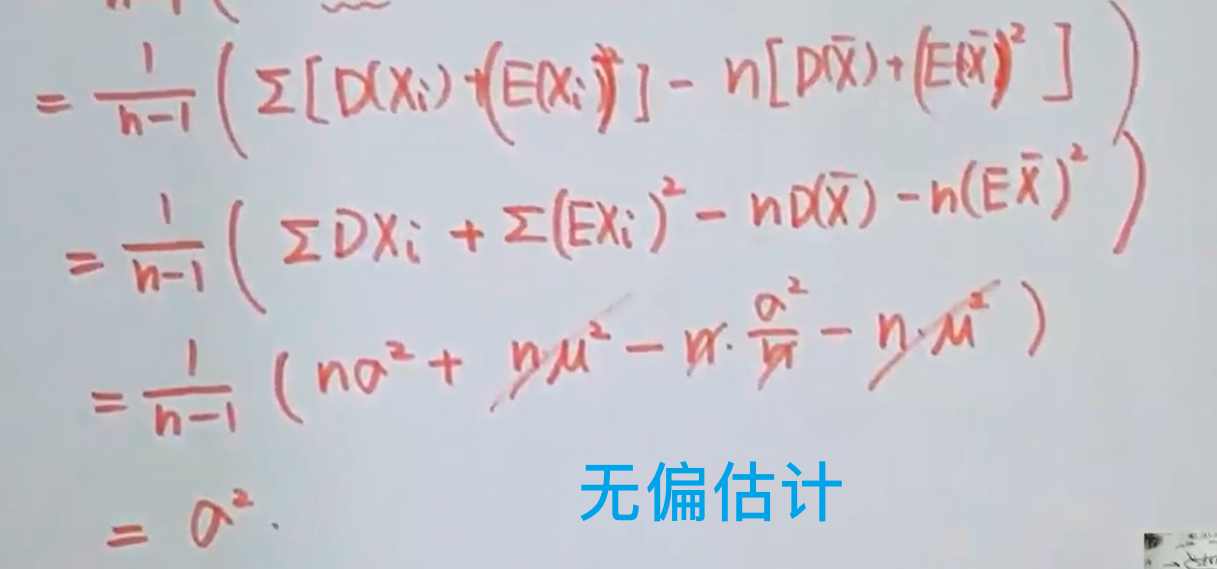 = 1/(n-1) ( Σ[D(Xi)+(E(Xi))²] - n[D(X̄)+(E(X̄))²] )
= 1/(n-1) ( ΣDXi + Σ(EXi)² - nD(X̄) - n(EX̄)² )
= 1/(n-1) ( na² + nμ² - n·a²/n - n·μ² )
= a².
无偏估计